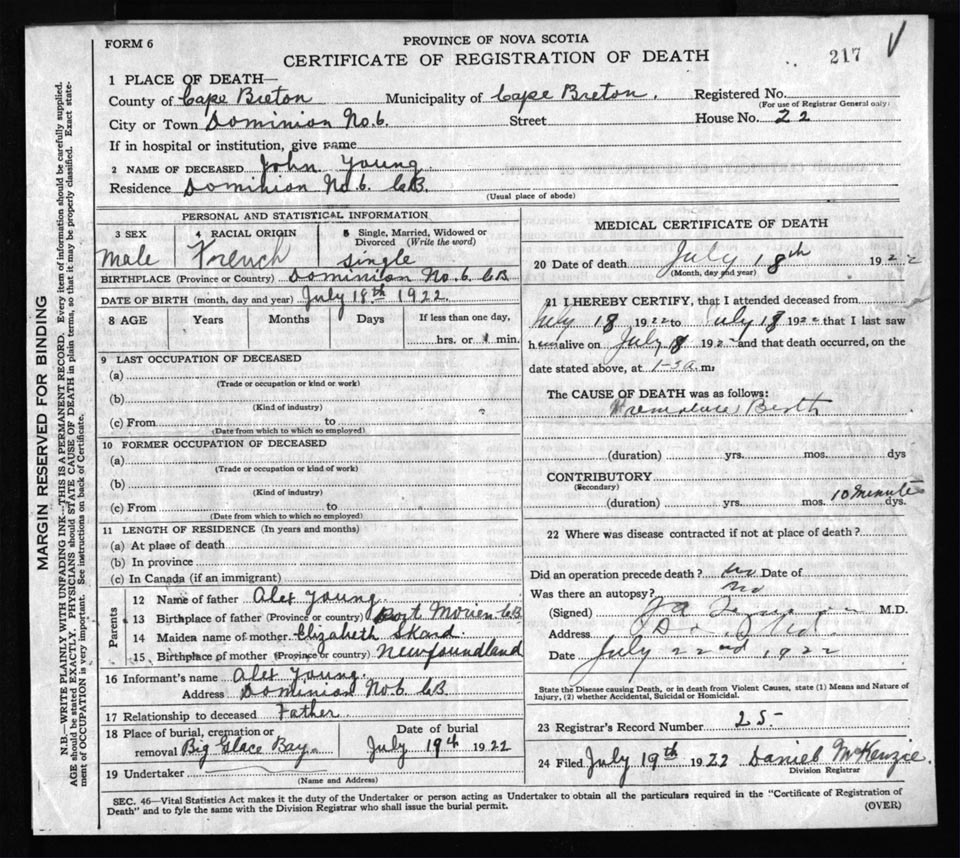 FORM 6
PROVINCE OF NOVA SCOTIA
CERTIFICATE OF REGISTRATION OF DEATH
217
1 PLACE OF DEATH—
County of Cape Breton Municipality of Cape Breton. Registered No.
(For use of Registrar General only)
City or Town Dominion No. 6. Street House No. 22
If in hospital or institution, give name
2 NAME OF DECEASED John Young
Residence Dominion No. 6. C.B.
(Usual place of abode)
PERSONAL AND STATISTICAL INFORMATION
3 SEX
Male
4 RACIAL ORIGIN
French
5 Single, Married, Widowed or Divorced (Write the word)
Single
BIRTHPLACE (Province or Country) Dominion No. 6. C.B
DATE OF BIRTH (month, day and year) July 18th 1922
8 AGE Years Months Days If less than one day,
hrs. or min.
9 LAST OCCUPATION OF DECEASED
(a)
(Trade or occupation or kind or work)
(b)
(Kind of industry)
(c) From to
(Date from which to which so employed)
10 FORMER OCCUPATION OF DECEASED
(a)
(Trade or occupation or kind of work)
(b)
(Kind of industry)
(c) From to
(Date from which to which so employed)
11 LENGTH OF RESIDENCE (In years and months)
(a) At place of death
(b) In province
(c) In Canada (if an immigrant)
Parents
12 Name of father Alex Young
13 Birthplace of father (Province or country) Port Morien C.B
14 Maiden name of mother Elizabeth Skard.
15 Birthplace of mother (Province or country) Newfoundland
16 Informant's name Alex Young
Address Dominion No. 6. C.B
17 Relationship to deceased Father
18 Place of burial, cremation or removal Big Glace Bay
Date of burial
July 19th 1922
19 Undertaker
(Name and Address)
MEDICAL CERTIFICATE OF DEATH
20 Date of death July 18th 1922
(Month, day and year)
21 I HEREBY CERTIFY, that I attended deceased from
July 18 1922 to July 18 1922 that I last saw
him alive on July 18 192 and that death occurred, on the
date stated above, at a.m.
The CAUSE OF DEATH was as follows:
Premature Birth
(duration) yrs. mos. dys
CONTRIBUTORY
(Secondary)
10 minutes
(duration) yrs. mos. dys.
22 Where was disease contracted if not at place of death?
Did an operation precede death? no Date of
Was there an autopsy? No
(Signed) M.D.
Address
Date July 22nd 1922
State the Disease causing Death, or in death from Violent Causes, state (1) Means and Nature of
Injury, (2) whether Accidental, Suicidal or Homicidal.
23 Registrar's Record Number 25
24 Filed July 19th 1922 Daniel McKenzie.
Division Registrar
SEC. 46—Vital Statistics Act makes it the duty of the Undertaker or person acting as Undertaker to obtain all the particulars required in the "Certificate of Registration of
Death" and to fyle the same with the Division Registrar who shall issue the burial permit.
(OVER)
MARGIN RESERVED FOR BINDING
N.B.—WRITE PLAINLY WITH UNFADING INK—THIS IS A PERMANENT RECORD. Every item of information should be carefully supplied.
AGE should be stated EXACTLY. PHYSICIANS should STATE CAUSE OF DEATH in plain terms, so that it may be properly classified. Exact state-
ment of OCCUPATION is very important. See instructions on back of Certificate.